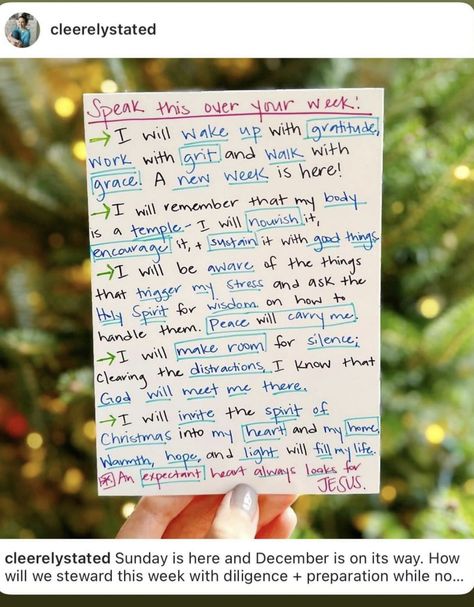 cleerelystated
Speak this over your week!
→ I will wake up with gratitude,
work with grit and walk with
grace! A new week is here!
→ I will remember that my body
is a temple - I will nourish it,
encourage it, + sustain it with good things.
→ I will be aware of the things
that trigger my stress and ask the
Holy Spirit for wisdom on how to
handle them. Peace will carry me.
→ I will make room for silence;
clearing the distractions, I know that
God will meet me there.
→ I will invite the spirit of
Christmas into my heart and my home.
Warmth, hope, and light will fill my life.
An expectant heart always looks for
JESUS.
cleerelystated Sunday is here and December is on its way. How
will we steward this week with diligence + preparation while no...